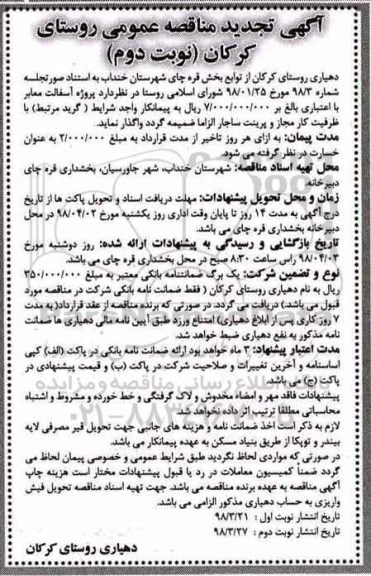 آگهی تجدید مناقصه عمومی روستای
کرکان (نوبت دوم)
دهیاری روستای کرکان از توابع بخش قره چای شهرستان خنداب به استناد صورتجلسه
شماره ۹۸/۳ مورخ ۹۸/۰۱/۲۵ شورای اسلامی روستا در نظردارد پروژه آسفالت معابر
با اعتباری بالغ بر ۷/۰۰۰/۰۰۰/۰۰۰ ریال به پیمانکار واجد شرایط ( گرید مرتبط) با
ظرفیت کار مجاز و پرینت ساجار الزاما ضمیمه گردد واگذار نماید.
مدت پیمان: به ازای هر روز تاخیر از مدت قرارداد به مبلغ ۲/۰۰۰/۰۰۰ به عنوان
خسارت در نظر گرفته می شود.
محل تهیه اسناد مناقصه: شهرستان خنداب، شهر جاورسیان، بخشداری قره چای
دبیرخانه
زمان و محل تحویل پیشنهادات: مهلت دریافت اسناد و تحویل پاکت ها از تاریخ
درج آگهی به مدت ۱۴ روز تا پایان وقت اداری روز یکشنبه مورخ ۹۸/۰۴/۰۲ در محل
دبیرخانه بخشداری قره چای می باشد.
تاریخ بازگشایی و رسیدگی به پیشنهادات ارائه شده: روز دوشنبه مورخ
۹۸/۰۴/۰۳ راس ساعت ۸:۳۰ صبح در محل بخشداری قره چای می باشد.
نوع و تضمین شرکت: یک برگ ضمانتنامه بانکی معتبر به مبلغ ۳۵۰/۰۰۰/۰۰۰
ریال به نام دهیاری روستای کرکان ( فقط ضمانت نامه بانکی شرکت در مناقصه مورد
قبول می باشد.) دریافت می گردد. در صورتی که برنده مناقصه از عقد قرارداد(به مدت
۷ روز کاری پس از ابلاغ دهیاری) امتناع ورزد طبق آیین نامه مالی دهیاری ها ضمانت
نامه مذکور به نفع دهیاری ضبط خواهد شد.
مدت اعتبار پیشنهاد: ۳ ماه خواهد بود ارائه ضمانت نامه بانکی در پاکت (الف) کپی
اساسنامه و آخرین تغییرات و صلاحیت شرکت در پاکت (ب) و قیمت پیشنهادی در
پاکت (ج) می باشد.
پیشنهادات فاقد مهر و امضاء مخدوش و لاک گرفتگی و خط خورده و مشروط و اشتباه
محاسباتی مطلقا ترتیب اثر داده نخواهد شد.
لازم به ذکر است اخذ ضمانت نامه و هزینه های جانبی جهت تحویل قیر مصرفی لایه
بیندر و توپکا از طریق بنیاد مسکن به عهده پیمانکار می باشد.
در صورتی که مواردی لحاظ نگردید طبق شرایط عمومی و خصوصی پیمان لحاظ می
گردد ضمناً کمیسیون معاملات در رد یا قبول پیشنهادات مختار است هزینه چاپ
آگهی مناقصه به عهده برنده مناقصه می باشد. جهت تهیه اسناد مناقصه تحویل فیش
واریزی به حساب دهیاری مذکور الزامی می باشد.
تاریخ انتشار نوبت اول : ۹۸/۳/۲۱
تاریخ انتشار نوبت دوم : ۹۸/۳/۲۷
دهیاری روستای کرکان